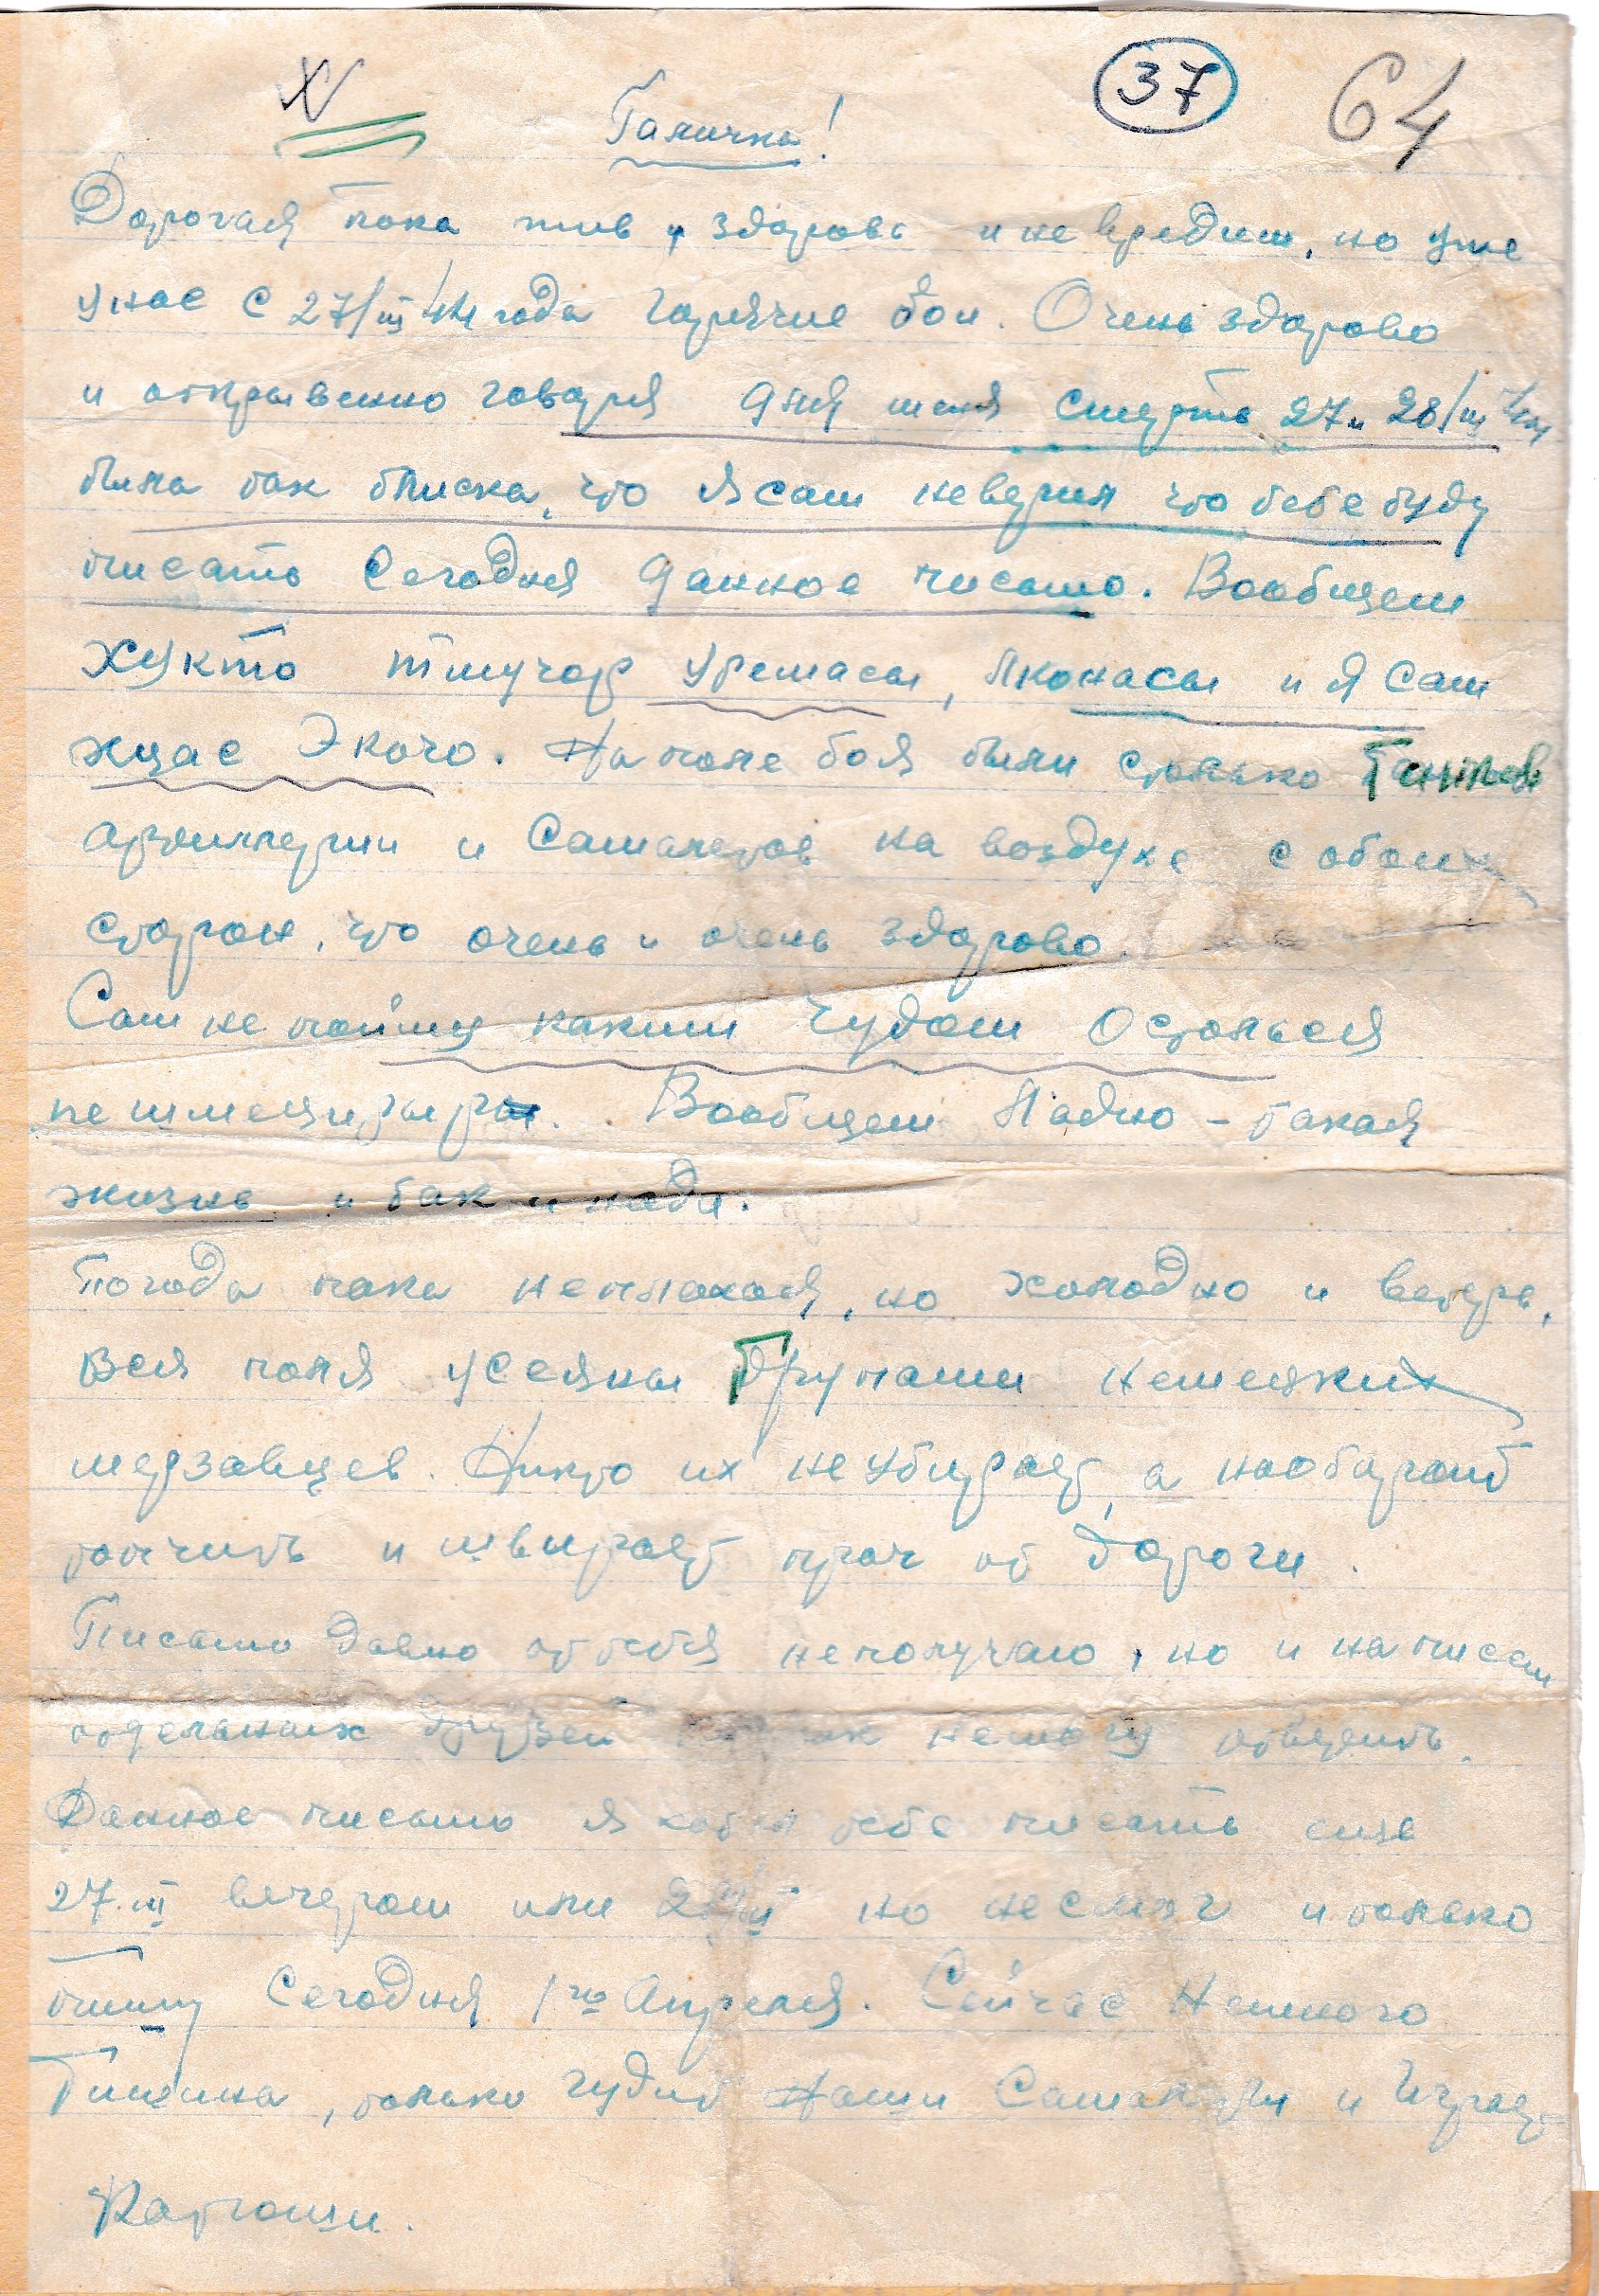 37 64
Галичка!
Дорогая пока жив и здоров и не вредим, но уже
у нас с 27/III 44 года горячие бои. Очень здорово
и открывенно говоря для меня смерть 27 и 28/III 44
была так близка, что я сам неверил что тебе буду
писать Сегодня данное письмо. Вообщем
и я сам
На поле боя были столько Танков
артиллерии и Самолетов на воздухе с обоих
сторон, что очень и очень здорово.
Сам не пойму каким Чудом Остался
Вообщем Ладно – такая
жизнь и так и надо.
Погода пока неплохая, но холодно и ветер,
Вся поля усеяны Трупами немецких
мерзавцев. Никто их неубирает, а наоборот
топчить и швырает проч от дороги.
Письмо давно от тебя неполучаю, но и на писем
отдельных друзей немогу ответить.
Данное письмо я хотел тебе писать еще
27.III вечером или но несмог и только
пишу Сегодня 1го Апреля. Сейчас Немного
Тишина, только гудит Наши Самолёты и Играет
Катюши.